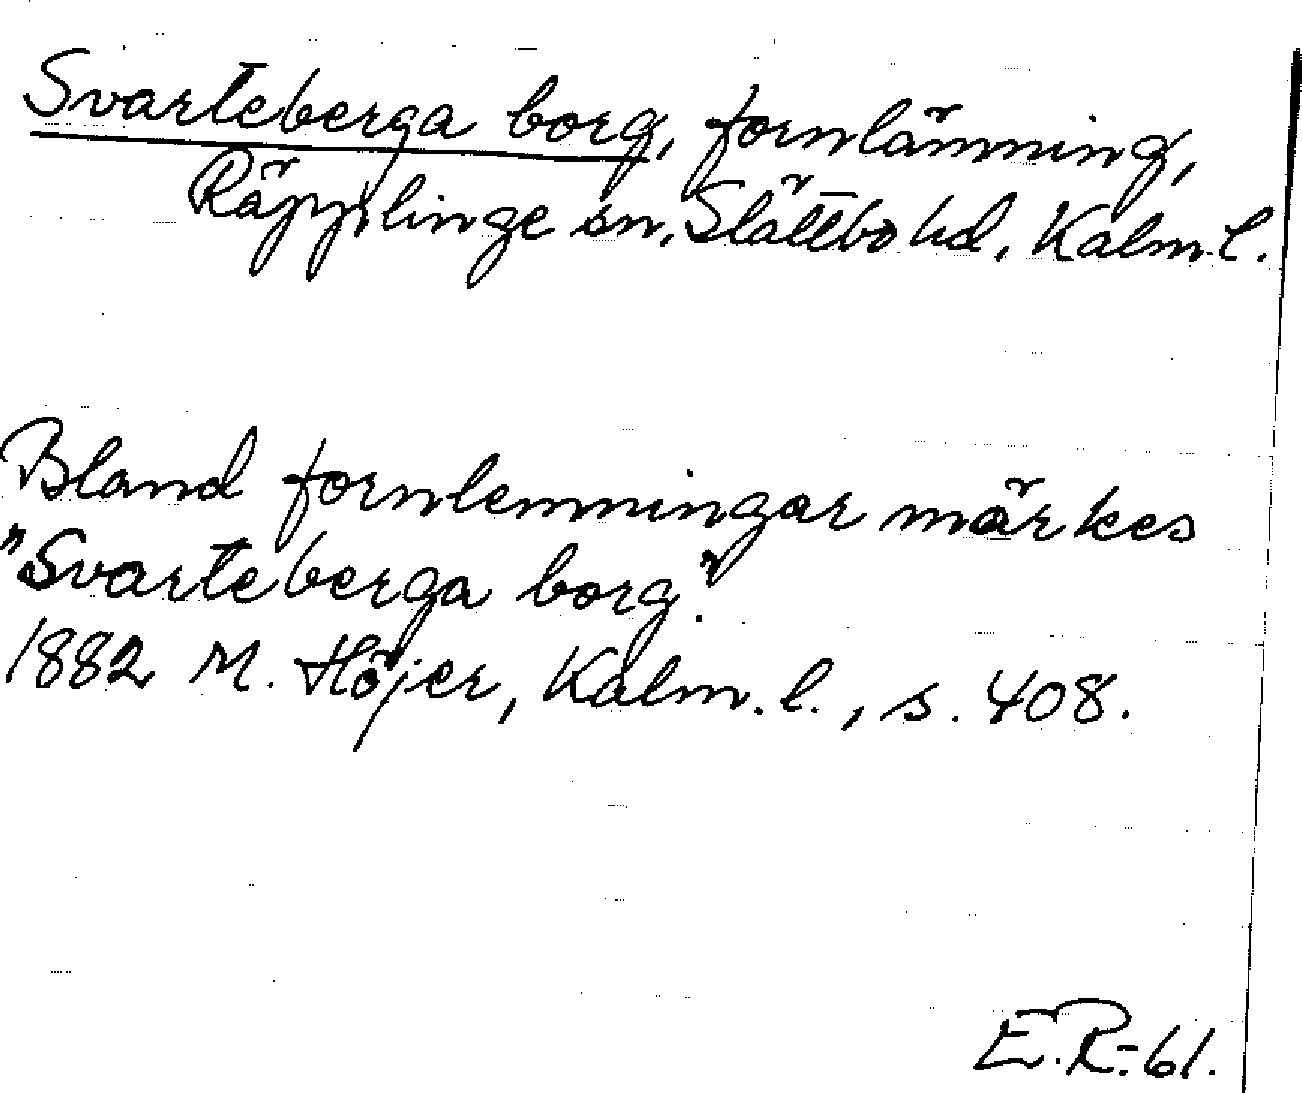 Svarteberga borg, fornlämning,
Räpplinge sn, Slättbo hd, Kalm. l.
Bland fornlemningar märkes
"Svarteberga borg".
1882 M. Höjer, Kalm. l., s. 408.
E.R.-61.